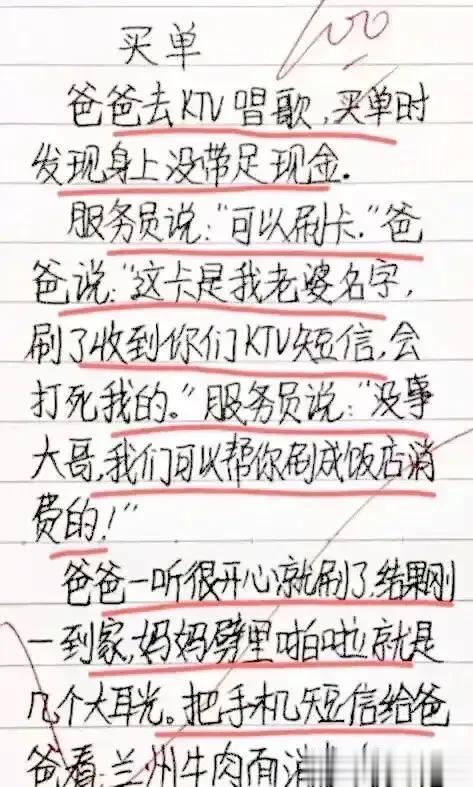 100
买单
爸爸去KTV唱歌,买单时
发现身上没带足现金.
服务员说:"可以刷卡."爸
爸说:"这卡是我老婆名字,
刷了收到你们KTV短信,会
打死我的."服务员说:"没事
大哥,我们可以帮你刷成饭店消
费的!"
爸爸一听很开心就刷了,结果刚
一到家,妈妈劈里啪啦就是
几个大耳光。把手机短信给爸
爸看:兰州牛肉面消